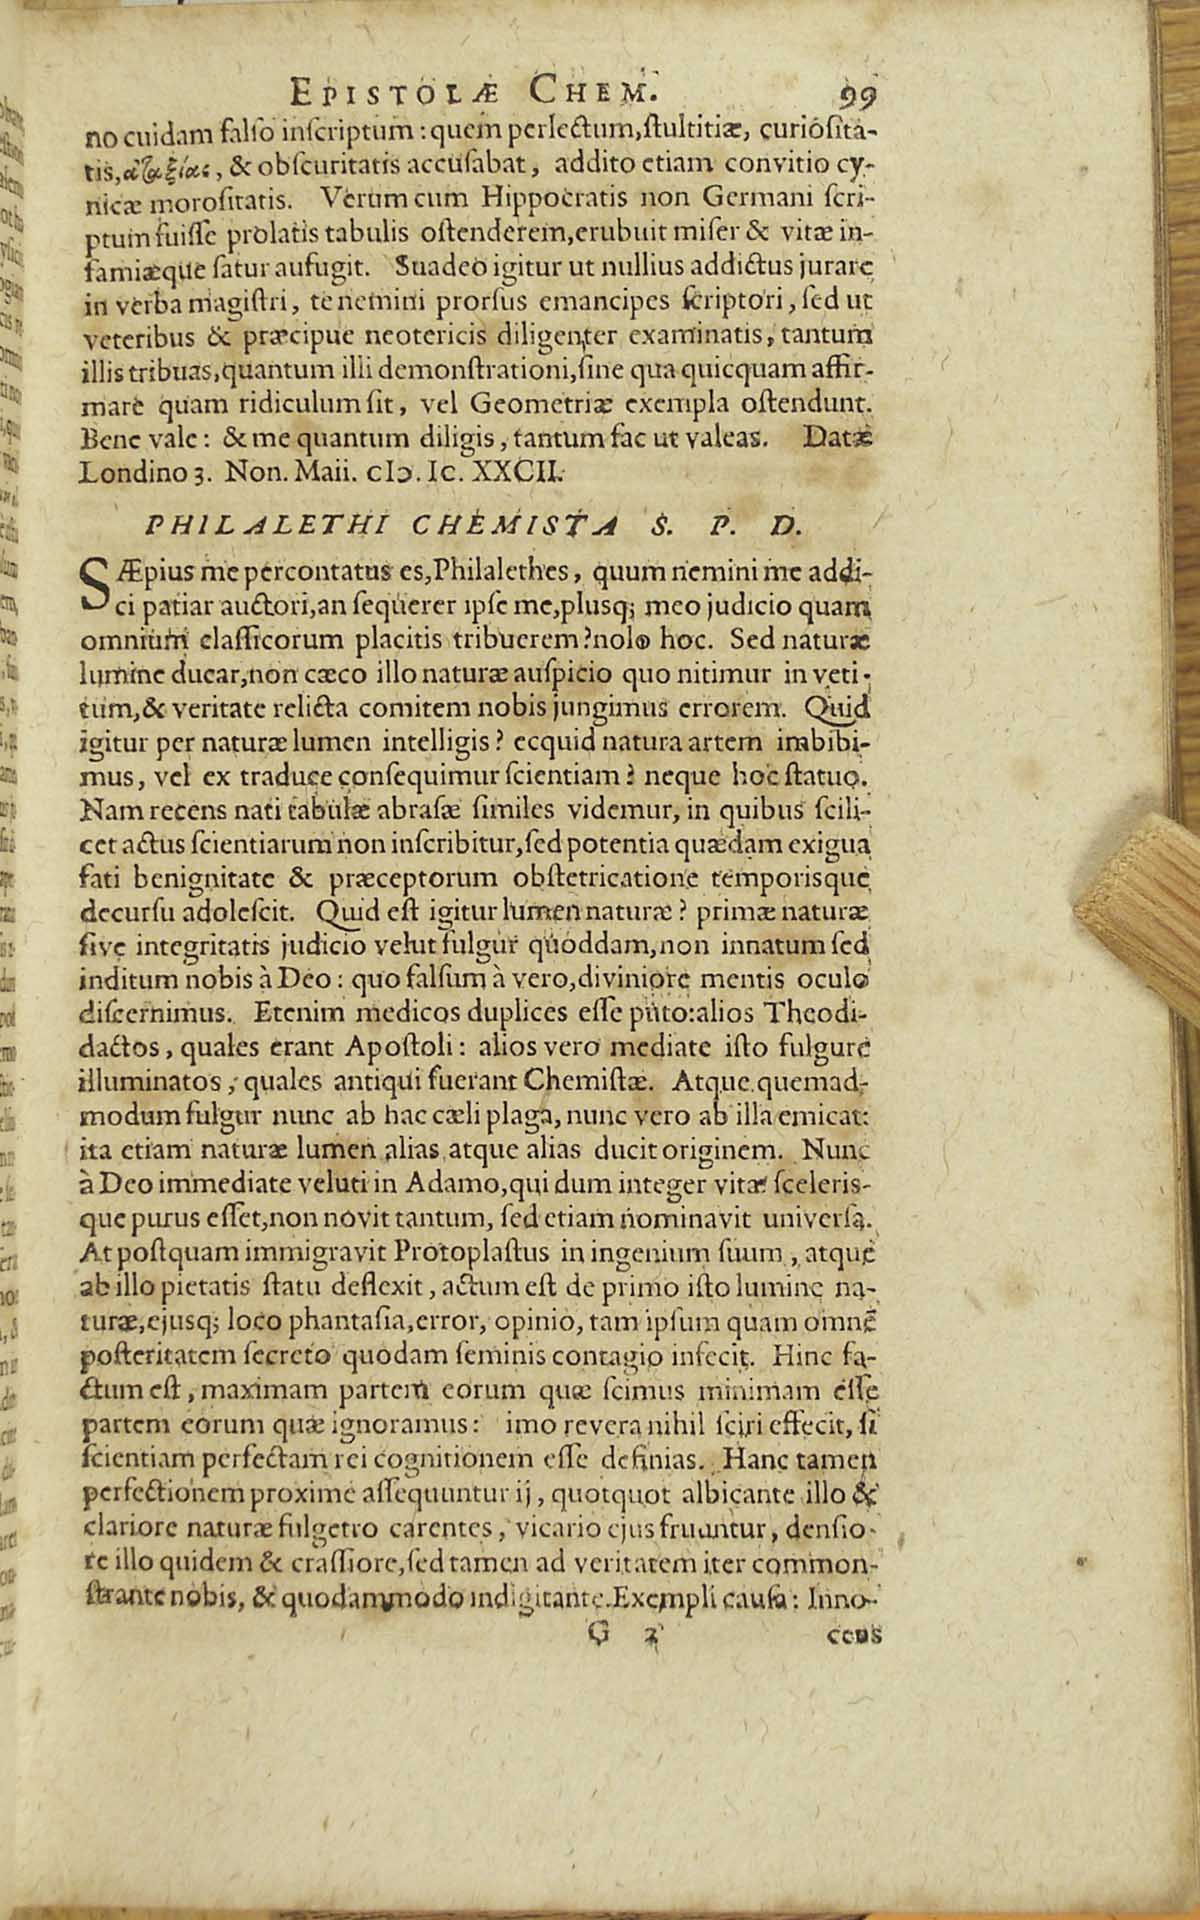 EPISTOLÆ CHEM. 99
no cuidam falſo inſcriptum: quem perlectum, ſtultitiæ, curióſita-
tis, ἀταξίας, & obſcuritatis accuſabat, addito etiam convitio cy-
nicæ moroſitatis. Verum cum Hippocratis non Germani ſcri-
ptum fuiſſe prolatis tabulis oſtenderem, erubuit miſer & vitæ in-
famiæque ſatur aufugit. Suadeo igitur ut nullius addictus jurare
in verba magiſtri, te nemini prorſus emancipes ſcriptori, ſed ut
veteribus & præcipue neotericis diligenter examinatis, tantum
illis tribuas, quantum illi demonſtrationi, ſine qua quicquam affir-
mare quam ridiculum ſit, vel Geometriæ exempla oſtendunt.
Bene vale: & me quantum diligis, tantum fac ut valeas. Datæ
Londino 3. Non. Maii. cIↃ. Ic. XXCII.
PHILALETHI CHEMISTA S. P. D.
SÆpius me percontatus es, Philalethes, quum nemini me addi-
ci patiar auctori, an ſequerer ipſe me, plusq; meo judicio quam
omnium claſſicorum placitis tribuerem? nolo hoc. Sed naturæ
lumine ducar, non cæco illo naturæ auſpicio quo nitimur in veti-
tum, & veritate relicta comitem nobis jungimus errorem. Quid
igitur per naturæ lumen intelligis? ecquid natura artem imbibi-
mus, vel ex traduce conſequimur ſcientiam? neque hoc ſtatuo.
Nam recens nati tabulæ abraſæ ſimiles videmur, in quibus ſcili-
cet actus ſcientiarum non inſcribitur, ſed potentia quædam exigua
fati benignitate & præceptorum obſtetricatione temporisque
decurſu adoleſcit. Quid eſt igitur lumen naturæ? primæ naturæ
ſive integritatis judicio velut fulgur quoddam, non innatum ſed
inditum nobis à Deo: quo falſum à vero, diviniore mentis oculo
diſcernimus. Etenim medicos duplices eſſe puto: alios Theodi-
dactos, quales erant Apoſtoli: alios vero mediate iſto fulgure
illuminatos, quales antiqui fuerant Chemiſtæ. Atque quemad-
modum fulgur nunc ab hac cæli plaga, nunc vero ab illa emicat:
ita etiam naturæ lumen alias atque alias ducit originem. Nunc
à Deo immediate veluti in Adamo, qui dum integer vitæ ſceleris-
que purus eſſet, non novit tantum, ſed etiam nominavit univerſa.
At poſtquam immigravit Protoplaſtus in ingenium ſuum, atque
ab illo pietatis ſtatu deflexit, actum eſt de primo iſto lumine na-
turæ, ejusq; loco phantaſia, error, opinio, tam ipſum quam omnẽ
poſteritatem ſecreto quodam ſeminis contagio infecit. Hinc fa-
ctum eſt, maximam partem eorum quæ ſcimus minimam eſſe
partem eorum quæ ignoramus: imo revera nihil ſciri effecit, ſi
ſcientiam perfectam rei cognitionem eſſe definias. Hanc tamen
perfectionem proxime aſſequuntur ij, quotquot albicante illo &
clariore naturæ fulgetro carentes, vicario ejus fruuntur, denſio-
re illo quidem & craſſiore, ſed tamen ad veritatem iter common-
ſtrante nobis, & quodammodo indigitante. Exempli cauſa: Inno-
G 2 cens